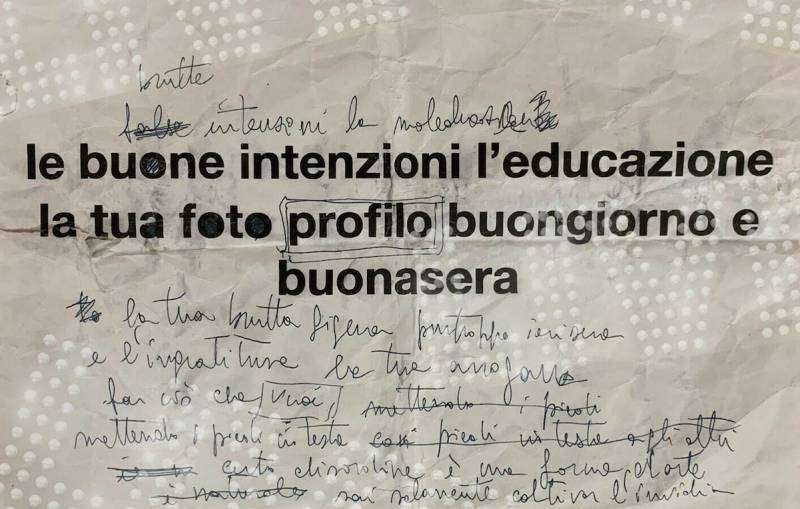 brutte
false intenzioni la maleducazione
le buone intenzioni l'educazione
la tua foto profilo buongiorno e
buonasera
la tua brutta figura purtroppo ieri sera
e l'ingratitudine la tua arroganza
fai ciò che vuoi, mettendo i piccoli
mettendo i piccoli in testa così piccoli in testa agli altri
questo disordine è una forma d'arte
è naturale sai solamente coltivar l'invidia